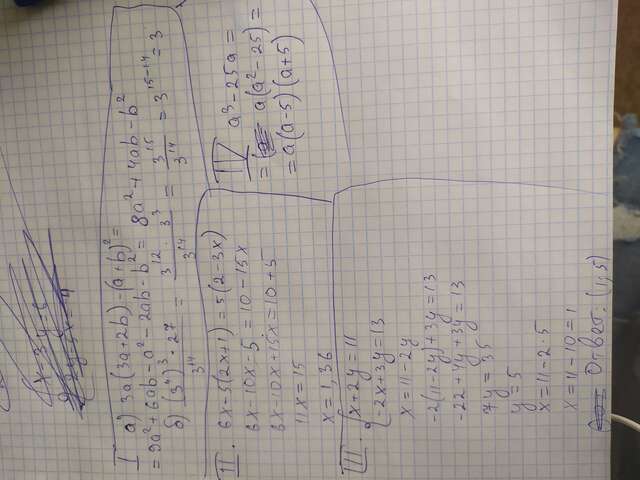 I а) 3a(3a-2b)-(a+b)²=
=9a²+6ab-a²-2ab-b²=8a²+4ab-b²
б) (3⁴)³·27/3¹⁴=3¹²·3³/3¹⁴=3¹⁵/3¹⁴=3¹⁵⁻¹⁴=3
II. 6x-5(2x+1)=5(2-3x)
6x-10x-5=10-15x
6x-10x+15x=10+5
11x=15
x=1,36
III. {x+2y=11
{-2x+3y=13
x=11-2y
-2(11-2y)+3y=13
-22+4y+3y=13
7y=35
y=5
x=11-2·5
x=11-10=1
Ответ: (1;5)
IV a³-25a=
=a(a²-25)=
=a(a-5)(a+5)